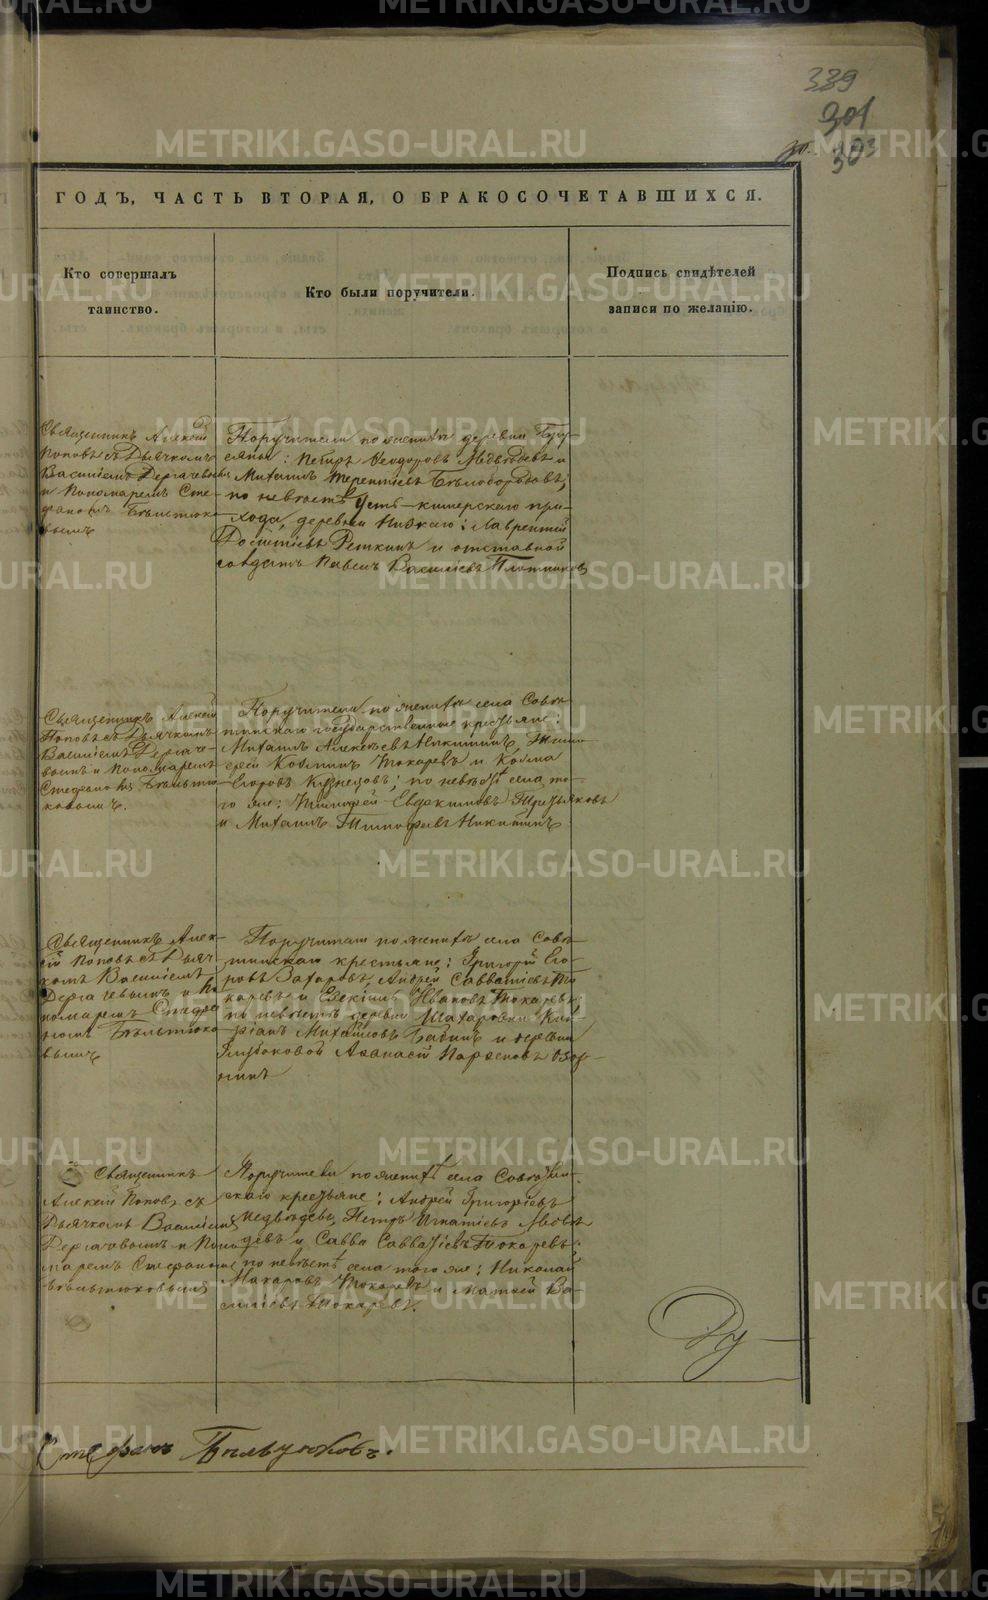 339
301
303
ГОДЪ, ЧАСТЬ ВТОРАЯ, О БРАКОСОЧЕТАВШИХСЯ.
Кто совершалъ
таинство.
Кто были поручители.
Подпись свидѣтелей
записи по желанію.
Священникъ Алексій
Поповъ съ Дьячкомъ
Василіемъ Дергачевымъ
и Пономаремъ Сте-
фаномъ Бѣльтюко-
вымъ
Поручители по женихѣ деревни
Петръ Ѳеодоровъ Медвѣдевъ и
Михаилъ Терентіевъ Бѣлобородовъ;
по невѣстѣ Усть-кишерскаго при-
хода, деревни Низкаго: Лаврентій
и отставной
солдатъ Павелъ Василіевъ Плотниковъ
Священникъ Алексій
Поповъ съ Дьячкомъ
Василіемъ Дергаче-
вымъ и Пономаремъ
Стефаномъ Бѣльтю-
ковымъ.
Поручители по женихѣ села Совѣ-
тинскаго государственные крестьяне:
Михаилъ Алексѣевъ Никитинъ, Тимо-
фей Козминъ Токаревъ и Козма
Егоровъ Кузнецовъ; по невѣстѣ села то-
го же: Тимофей Евдокимовъ Третьяковъ
и Михаилъ Тимофѣевъ Никитинъ
Священникъ Алек-
сій Поповъ съ Дьяч-
комъ Василіемъ
Дергачевымъ и По-
номаремъ Стефа-
номъ Бѣльтюко-
вымъ
Поручители по женихѣ села Совѣ-
тинскаго крестьяне: Григорій Его-
ровъ Захаровъ, Андрей Савватіевъ То-
каревъ и Евекіилъ Ивановъ Токаревъ;
по невѣстѣ деревни Шатаровки Кип-
ріанъ Михайловъ Бабинъ и деревни
Глубоковой Аѳанасій Парѳеновъ Озор-
нинъ
Священникъ
Алексій Поповъ съ
Дьячкомъ Василіемъ
Дергачевымъ и Поно-
маремъ Стефаномъ
Бѣльтюковымъ
Поручители по женихѣ села Совѣтин-
скаго крестьяне: Андрей Григоріевъ
Медвѣдевъ, Петръ Игнатіевъ Медвѣ-
девъ и Савва Савватіевъ Токаревъ;
по невѣстѣ села того же: Николай
Макаровъ Токаревъ и Матвей Ва-
силіевъ Токаревъ.
Стефанъ Бѣльтюковъ.
METRIKI.GASO-URAL.RU